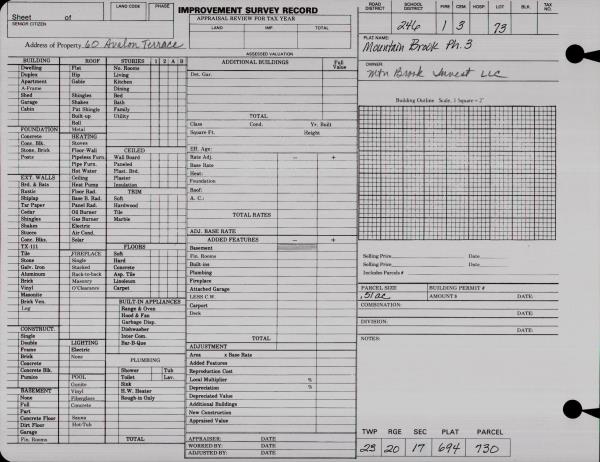 LAND CODE PHASE
IMPROVEMENT SURVEY RECORD
Sheet of
SENIOR CITIZEN
APPRAISAL REVIEW FOR TAX YEAR
LAND IMP. TOTAL
Address of Property 60 Avalon Terrace
ASSESSED VALUATION
ROAD DISTRICT SCHOOL DISTRICT FIRE CEM HOSP LOT BLK. TAX NO.
246 1 3 73
PLAT NAME:
Mountain Brook Ph. 3
OWNER:
Mtn Brook Invest LLC
Building Outline Scale, 1 Square = 2'
BUILDING
Dwelling
Duplex
Apartment
A-Frame
Shed
Garage
Cabin
FOUNDATION
Concrete
Conc. Blk.
Stone, Brick
Posts
EXT. WALLS
Brd. & Bats
Rustic
Shiplap
Tar Paper
Cedar
Shingles
Shakes
Stucco
Conc. Blks.
TX-111
Tile
Stone
Galv. Iron
Aluminum
Brick
Vinyl
Masonite
Brick Ven.
Log
CONSTRUCT.
Single
Double
Frame
Brick
Concrete
Concrete Blk.
Pumice
BASEMENT
None
Full
Part
Concrete Floor
Dirt Floor
Garage
Fin. Rooms
ROOF
Flat
Hip
Gable
Shingles
Shakes
Pat Shingle
Built-up
Roll
Metal
HEATING
Stoves
Floor-Wall
Pipeless Furn.
Pipe Furn.
Hot Water
Ceiling
Heat Pump
Floor Rad.
Base B. Rad.
Panel Rad.
Oil Burner
Gas Burner
Electric
Air Cond.
Solar
FIREPLACE
Single
Stacked
Back-to-back
Masonry
O'Clearance
LIGHTING
Electric
None
POOL
Gunite
Vinyl
Fiberglass
Concrete
Sauna
Hot-Tub
STORIES 1 2 A B
No. Rooms
Living
Kitchen
Dining
Bed
Bath
Family
Utility
CEILED
Wall Board
Paneled
Plast. Brd.
Plaster
Insulation
TRIM
Soft
Hardwood
Tile
Marble
FLOORS
Soft
Hard
Concrete
Asp. Tile
Linoleum
Carpet
BUILT-IN APPLIANCES
Range & Oven
Hood & Fan
Garbage Disp.
Dishwasher
Inter Com.
Bar-B-Que
PLUMBING
Shower Tub
Toilet Lav.
Sink
H.W. Heater
Rough-in Only
TOTAL
ADDITIONAL BUILDINGS Full Value
Det. Gar.
TOTAL
Class Cond. Yr. Built
Square Ft. Height
Eff. Age:
Rate Adj. – +
Base Rate
Heat:
Foundation
Roof:
A. C.:
TOTAL RATES
ADJ. BASE RATE
ADDED FEATURES – +
Basement
Fin. Rooms
Built-ins
Plumbing
Fireplace
Attached Garage
LESS C.W.
Carport
Deck
TOTAL
ADJUSTMENT
Area x Base Rate
Added Features
Reproduction Cost
Local Multiplier %
Depreciation %
Depreciated Value
Additional Buildings
New Construction
Appraised Value
APPRAISER: DATE
WORKED BY: DATE
ADJUSTED BY: DATE
Selling Price Date
Selling Price Date
Includes Parcels #
PARCEL SIZE BUILDING PERMIT #
.51 ac AMOUNT $ DATE:
COMBINATION: DATE:
DIVISION: DATE:
NOTES:
TWP RGE SEC PLAT PARCEL
23 20 17 694 730